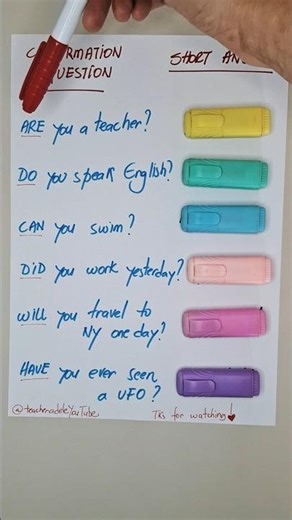 SHORT
QUESTION
ARE you a teacher?
DO you speak English?
CAN you swim?
DID you work yesterday?
WILL you travel to
NY one day?
HAVE you ever seen
a UFO?
@teacheradeleYouTube
TKs for watching